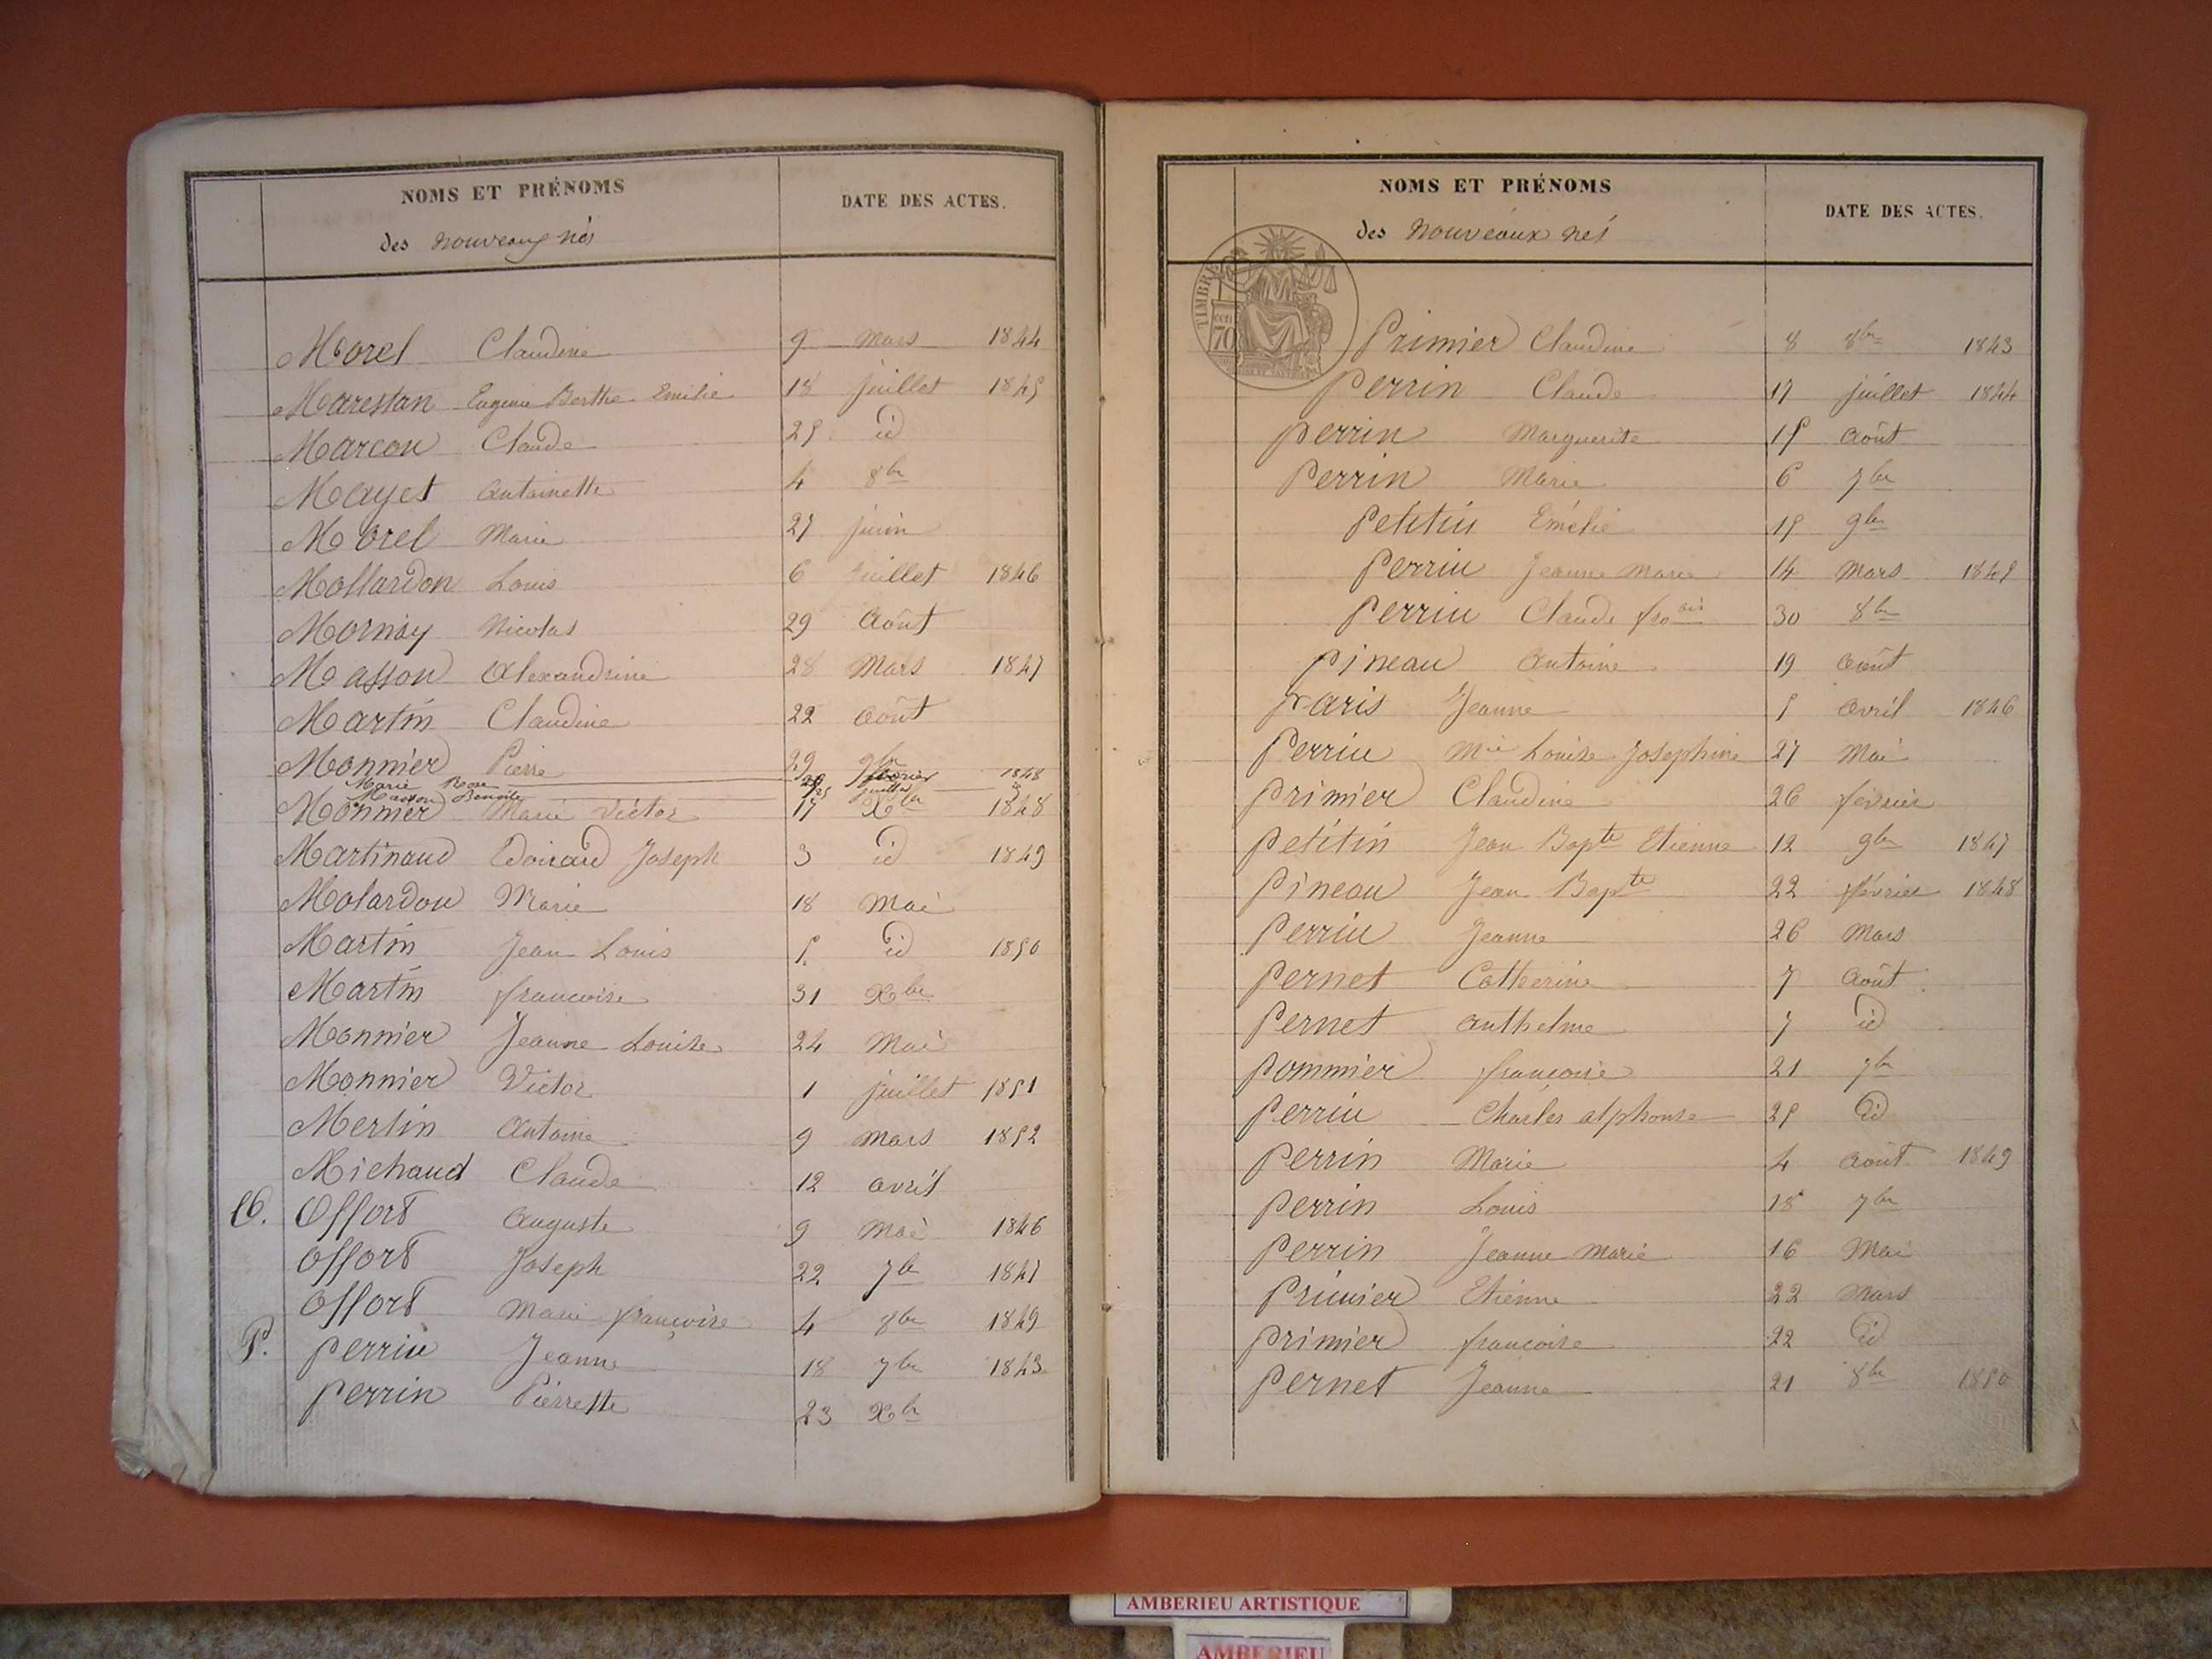 NOMS ET PRÉNOMS DATE DES ACTES.
des nouveaux nés
Morel Claudine 9 Mars 1844
Marestan Eugenie Berthe Emilie 18 juillet 1845
Marcon Claude 25 id
Mayet Antoinette 4 8bre
Morel Marie 27 juin
Mollardon Louis 6 juillet 1846
Mornay Nicolas 29 Août
Masson Alexandrine 28 Mars 1847
Martin Claudine 22 Août
Monnier Pierre 29 9bre
Marie Rose février 1848
Masson Benoite 25 juillet id
Monnier Marie Victor 17 Xbre 1848
Martinaud Edouard Joseph 3 id 1849
Molardon Marie 18 Mai
Martin Jean Louis 5 id 1850
Martin francoise 31 Xbre
Monnier Jeanne Louise 24 Mai
Monnier Victor 1 juillet 1851
Merlin Antoine 9 Mars 1852
Michaud Claude 12 avril
O. Offort Auguste 9 Mai 1846
Offort Joseph 22 7bre 1847
Offort Marie françoise 4 8bre 1849
P. Perrin Jeanne 18 7bre 1843
Perrin Pierrette 23 Xbre
NOMS ET PRÉNOMS DATE DES ACTES.
des Nouveaux nés
TIMBRE
70
Primier Claudine 8 8bre 1843
Perrin Claude 17 juillet 1844
Perrin Marguerite 15 Août
Perrin Marie 6 7bre
Petitin Emélie 15 9bre
Perrin Jeanne Marie 14 Mars 1845
Perrin Claude frois 30 8bre
Pineau Antoine 19 Août
Paris Jeanne 5 Avril 1846
Perrin Mie Louise Josephine 27 Mai
Primier Claudine 26 février
Petitin Jean Bapte Etienne 12 9bre 1847
Pineau Jean Bapte 22 février 1848
Perrin Jeanne 26 Mars
Pernet Catherine 7 Août
Pernet Anthelme 7 id
Pommier françoise 21 7bre
Perrin Charles alphonse 25 id
Perrin Marie 4 Août 1849
Perrin Louis 18 7bre
Perrin Jeanne Marie 16 Mai
Primier Etienne 22 Mars
Primier francoise 22 id
Pernet Jeanne 21 8bre 1850
AMBERIEU ARTISTIQUE
AMBERIEU